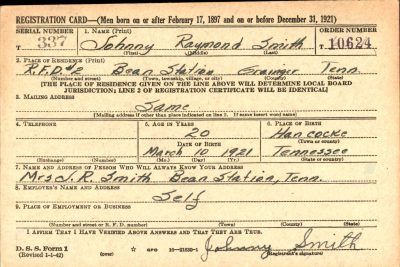 REGISTRATION CARD—(Men born on or after February 17, 1897 and on or before December 31, 1921)
SERIAL NUMBER 1. NAME (Print) ORDER NUMBER
T 337 Johnny Raymond Smith T 10624
(First) (Middle) (Last)
2. PLACE OF RESIDENCE (Print)
R.F.D.#2 Bean Station Grainger Tenn.
(Number and street) (Town, township, village, or city) (County) (State)
[THE PLACE OF RESIDENCE GIVEN ON THE LINE ABOVE WILL DETERMINE LOCAL BOARD
JURISDICTION; LINE 2 OF REGISTRATION CERTIFICATE WILL BE IDENTICAL]
3. MAILING ADDRESS
Same
[Mailing address if other than place indicated on line 2. If same insert word same]
4. TELEPHONE 5. AGE IN YEARS 6. PLACE OF BIRTH
20 Hancocke
DATE OF BIRTH (Town or county)
March 10 1921 Tennessee
(Exchange) (Number) (Mo.) (Day) (Yr.) (State or country)
7. NAME AND ADDRESS OF PERSON WHO WILL ALWAYS KNOW YOUR ADDRESS
Mrs J.R. Smith Bean Station, Tenn.
8. EMPLOYER'S NAME AND ADDRESS
Self
9. PLACE OF EMPLOYMENT OR BUSINESS
(Number and street or R. F. D. number) (Town) (County) (State)
I AFFIRM THAT I HAVE VERIFIED ABOVE ANSWERS AND THAT THEY ARE TRUE.
D. S. S. Form 1 Johnny Smith
(Revised 1-1-42) (over) GPO 16—21630-1 (Registrant's signature)